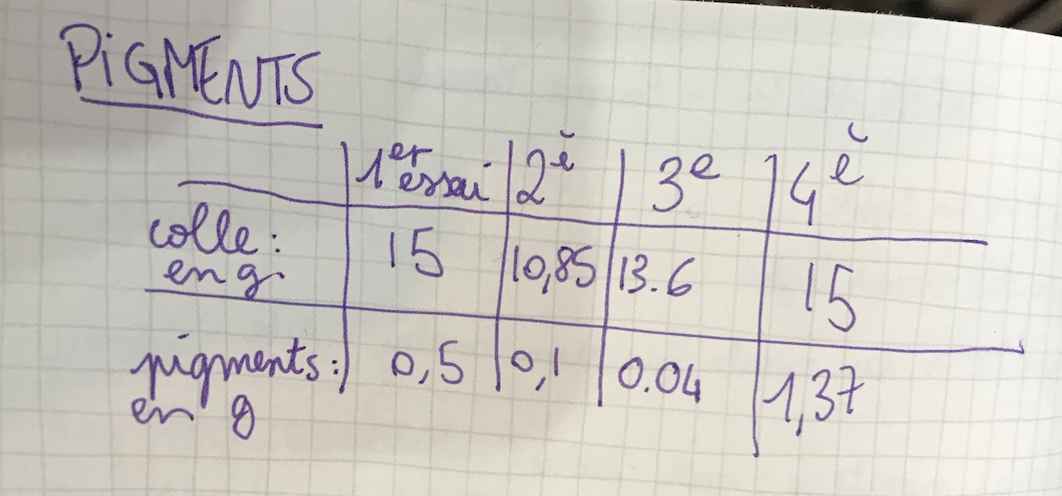 PIGMENTS
1er essai 2è 3e 4è
colle: en g. 15 10,85 13.6 15
pigments: en g 0,5 0,1 0.04 1,37